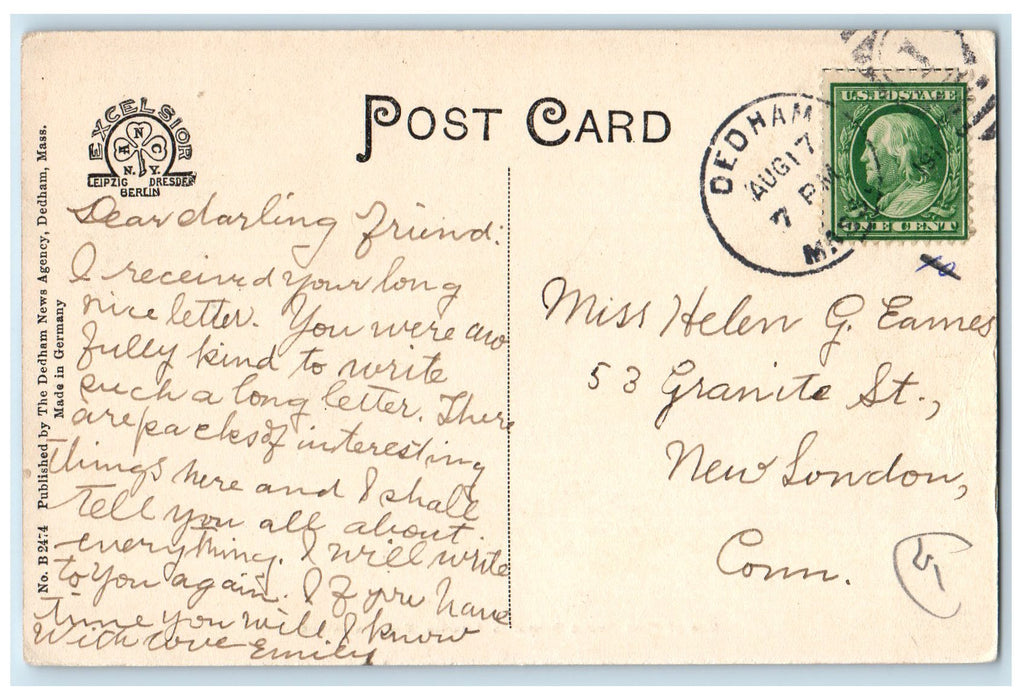 POST CARD
EXCELSIOR
A N C
N.Y.
LEIPZIG DRESDEN
BERLIN
No. B 2474 Published by The Dedham News Agency, Dedham, Mass.
Made in Germany
DEDHAM
AUG 17
7 PM
MASS
U.S. POSTAGE
ONE CENT
Dear darling friend:
I received your long
nice letter. You were aw
fully kind to write
such a long letter. There
are packs of interesting
things here and I shall
tell you all about
everything. I will write
to you again. If you have
time you will. I know
With love Emily
Miss Helen G. Eames
53 Granite St.,
New London,
Conn.